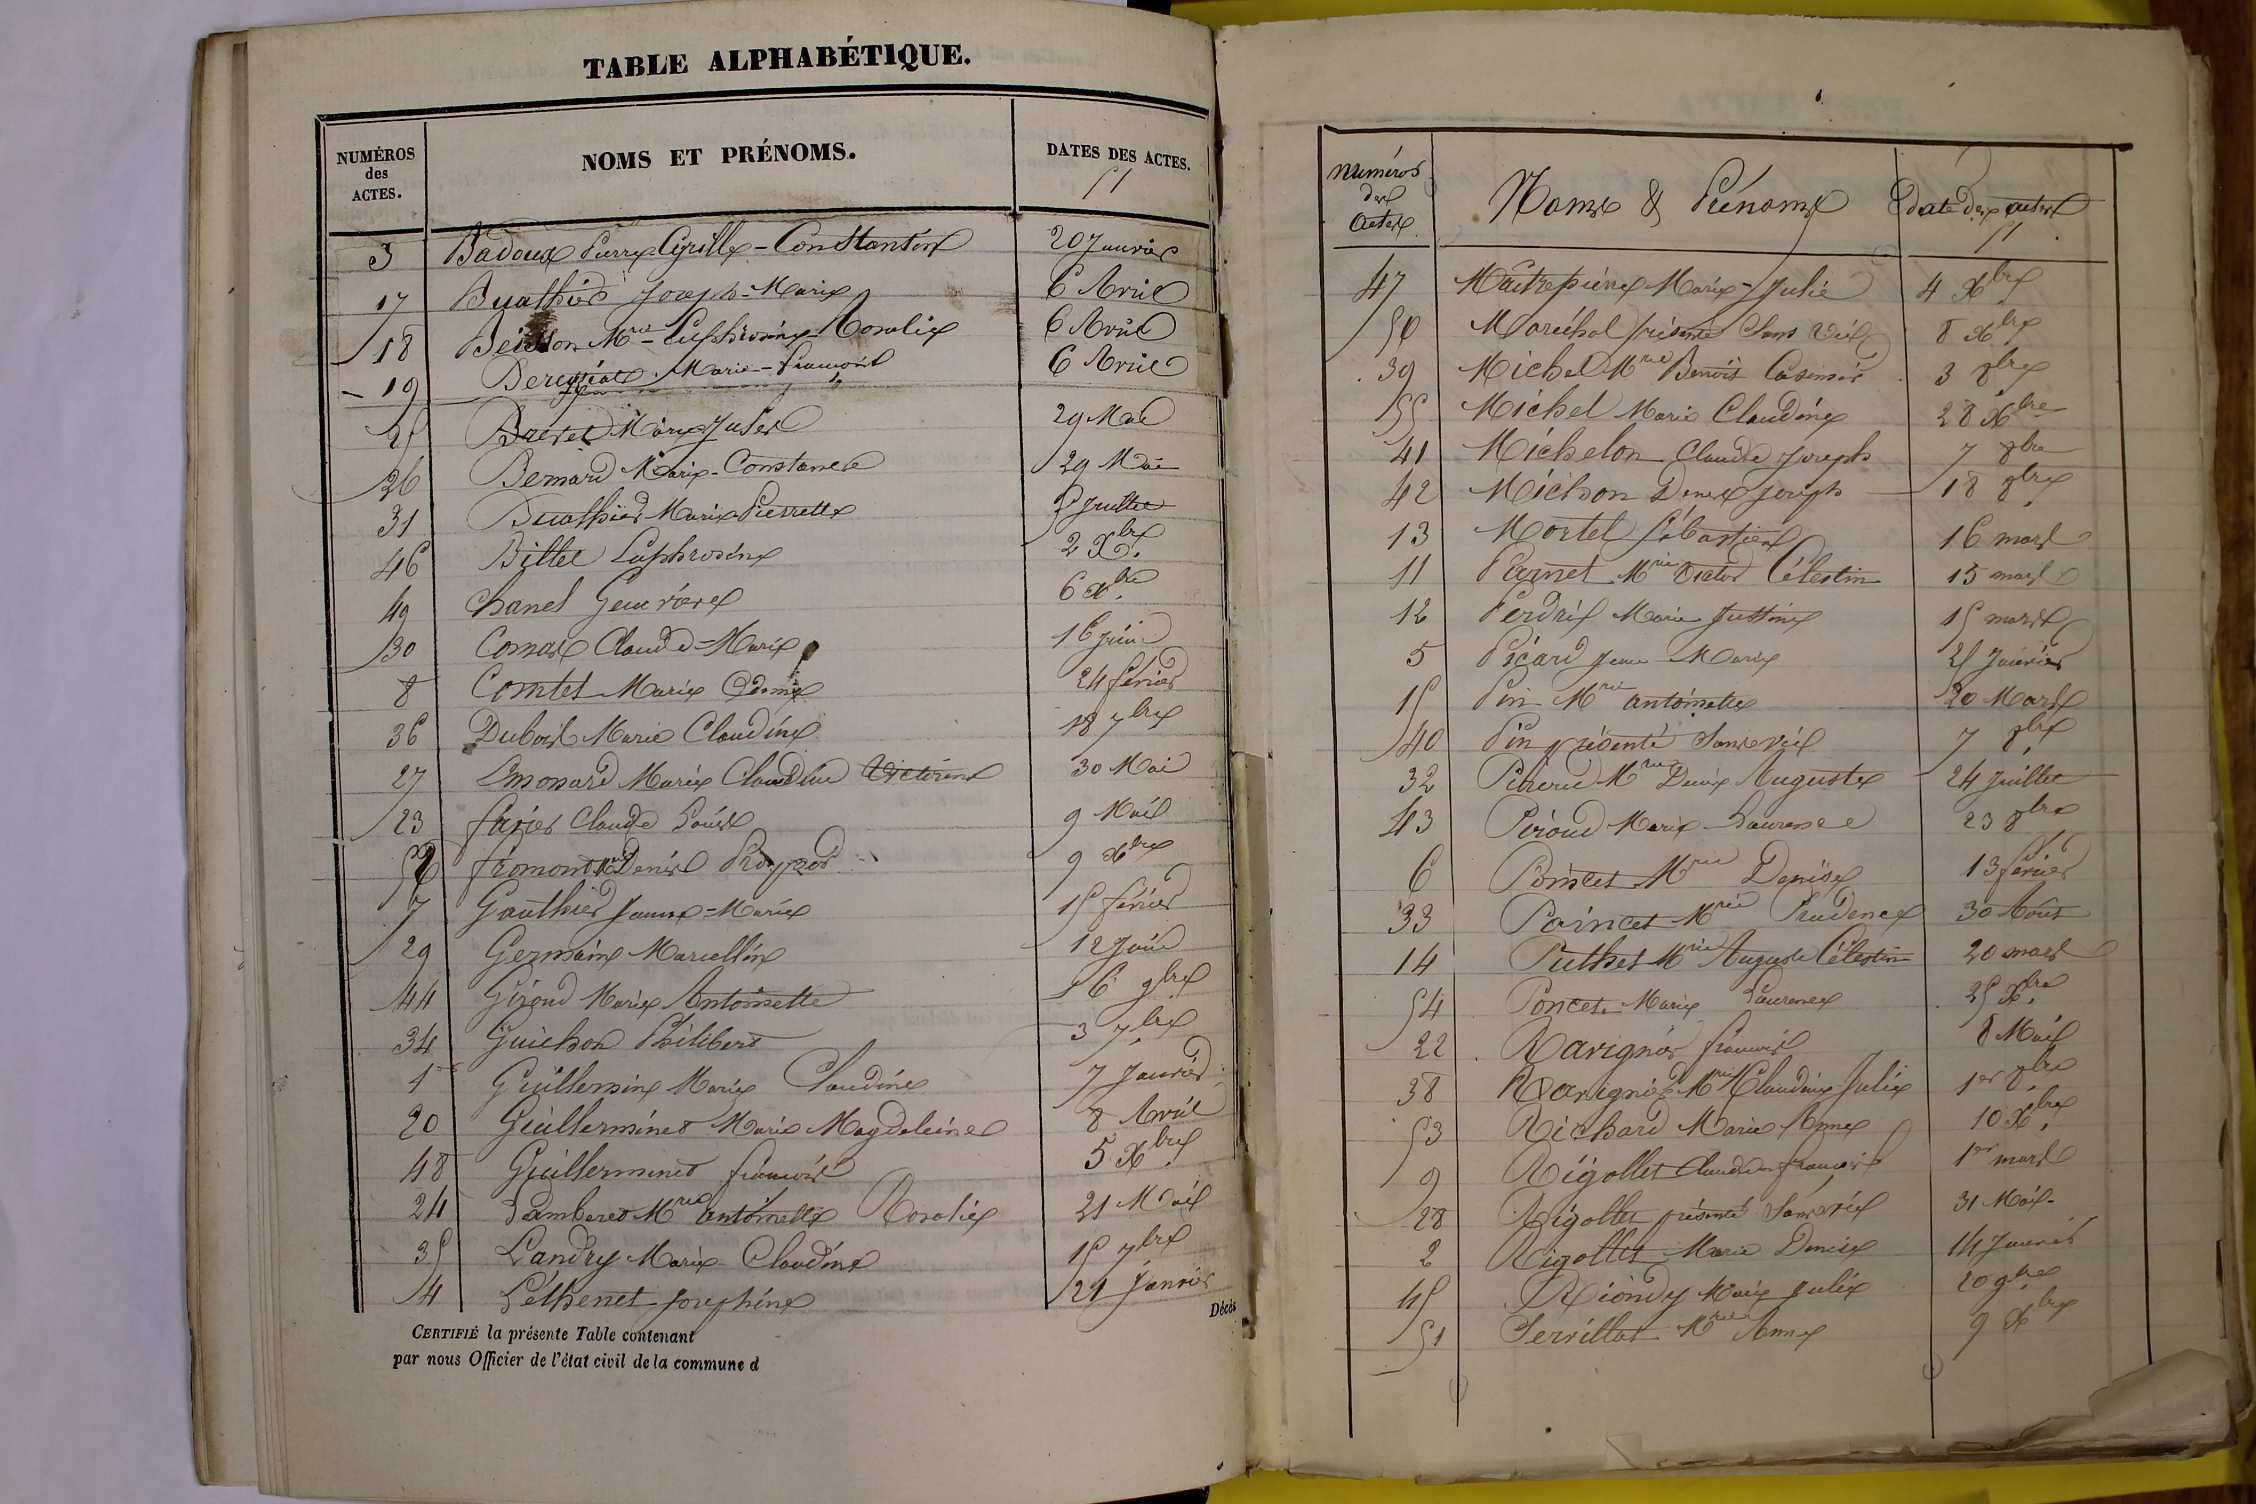 TABLE ALPHABÉTIQUE.
NUMÉROS des ACTES. NOMS ET PRÉNOMS. DATES DES ACTES.
3 Badoux Pierre Cyrille-Constantin 20 Janvier
17 Buathier Joseph-Marie 6 Avril
18 Beisson Mrie-Euphrosine Rosalie 6 Avril
19 Marie-François 6 Avril
25 Marie 29 Mai
26 Bernard Marie-Constance 29 Mai
31 Buathier Marie Pierrette 5 Juillet
46 Billet Euphrosine 2 Xbre
49 Chanel Genevieve 6 Xbre
30 Comas Claude-Marie 16 juin
8 Comtet Marie 24 février
36 Dubois Marie Claudine 18 7bre
27 Emonard Marie Claudine Victorine 30 Mai
23 farjer Claude Louis 9 Mai
52 fromont Denis 9 Xbre
7 Gauthier Jeanne=Marie 15 février
29 Germain Marcellin 12 Juin
44 Giroud Marie Antoinette 6 9bre
34 Guichon Philibert 3 7bre
1 Guillermin Marie Claudine 7 Janvier
20 Guillerminet Marie Magdeleine 8 Avril
48 Guillerminet françois 5 Xbre
24 Lamberet Mrie antoinette Rosalie 21 Mai
35 Landry Marie-Claudine 15 7bre
4 Léthenet Josephine 21 Janvier
Décès
CERTIFIÉ la présente Table contenant
par nous Officier de l'état civil de la commune d
Numéros des actes Noms & Prénoms date des actes
47 Maitrepierre Marie-Julie 4 Xbre
50 Maréchal présenté sans vie 8 Xbre
39 Michel Mrie Benoit Casimir 3 8bre
55 Michel Marie Claudine 28 Xbre
41 Michelon Claude Joseph 7 8bre
42 Michon Denis Joseph 18 8bre
13 Mortel Sébastien 16 mars
11 Parnet Mrie Victor Célestin 15 mars
12 Perdrix Marie Justine 15 mars
5 Picard Jean Marie 25 Janvier
15 Pin Mrie antoinette 20 Mars
40 Pin présenté sans vie 7 8bre
32 Mrie Denis Auguste 24 Juillet
43 Piroud Marie Laurence 23 8bre
6 Poincet Mrie Denise 13 février
33 Poincet Mrie Prudence 30 Aout
14 Puthet Mrie Auguste Célestin 20 mars
54 Poncet Marie Laurence 25 Xbre
22 Ravignor françois 8 Mai
38 Mrie Claudine Julie 1er 8bre
53 Richard Marie Anne 10 Xbre
9 Rigollet Claude françois 1er mars
28 Rigollet présenté sans vie 31 Mai
2 Rigollet Marie Denise 14 Janvier
45 Riondy Marie Julie 20 9bre
51 Servillat Mrie Anne 9 Xbre